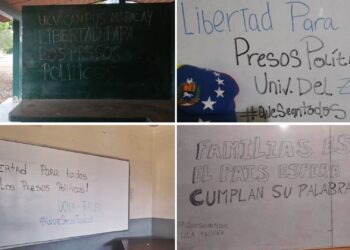 UCV CAMPUS MARACAY
LIBERTAD PARA
LOS PRESOS
POLITIC
Libertad Para
Presos Polít
Univ. Del Z
#QueSeanTodos
ertad Para todos
Los Presos Políticos!
#QueSeanTodos
FAMILIAS ES
EL PAIS ESPERA
CUMPLAN SU PALABRA
#QueSeanTodos